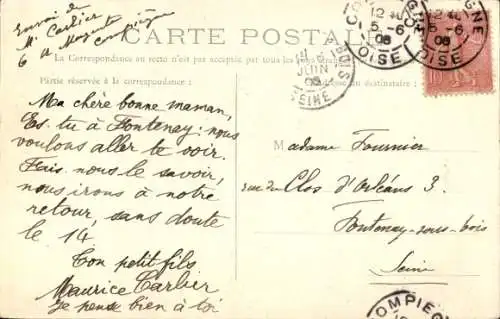 Envoi de
M. Carlier
6 r Mozart
Compiègne
CARTE POSTALE
La Correspondance au recto n'est pas acceptée par tous les pays
Partie réservée à la correspondance :
destinataire :
Ma chère bonne maman,
Es-tu à Fontenay : nous
voulons aller te voir.
Fais-nous le savoir,
nous irons à notre
retour, sans doute
le 14
Ton petit fils
Maurice Carlier
Je pense bien à toi
Madame Fournier
rue du Clos d'Orléans 3.
Fontenay-sous-bois
Seine
12
5-6
08
OISE
12
5-6
08
OISE
JUIN
08
SEINE
COMPIEG